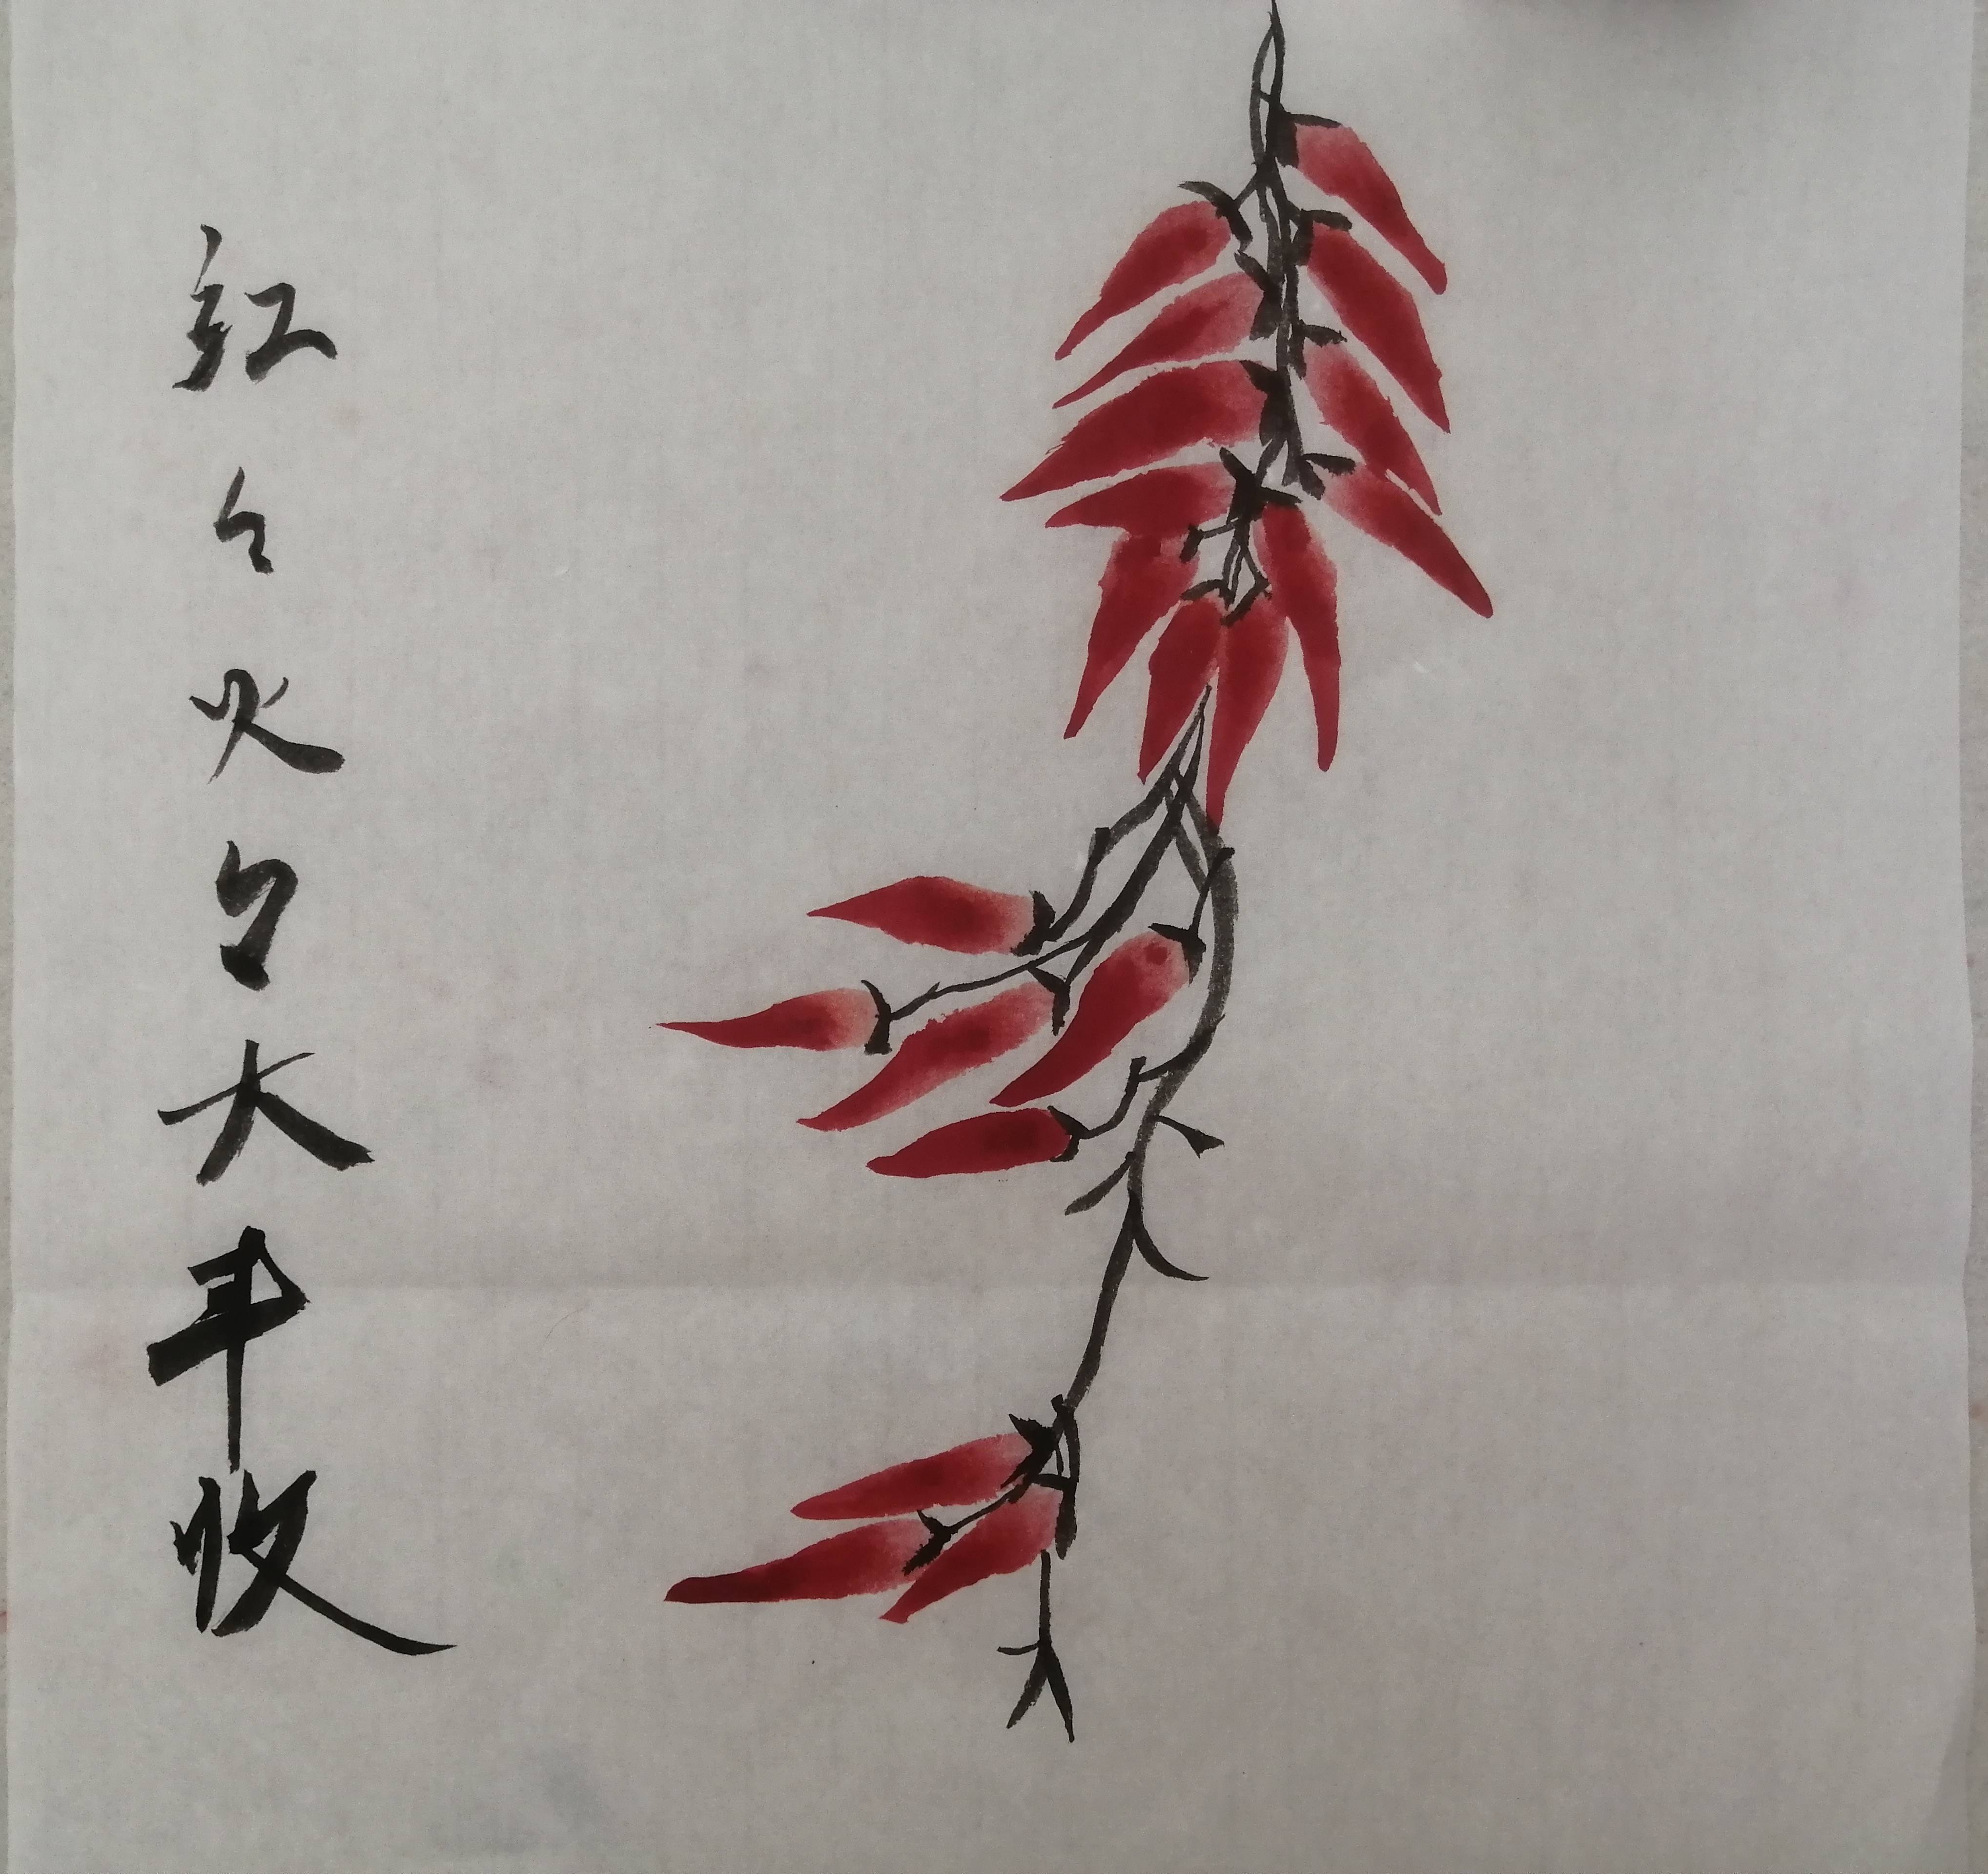 红々火々大丰收